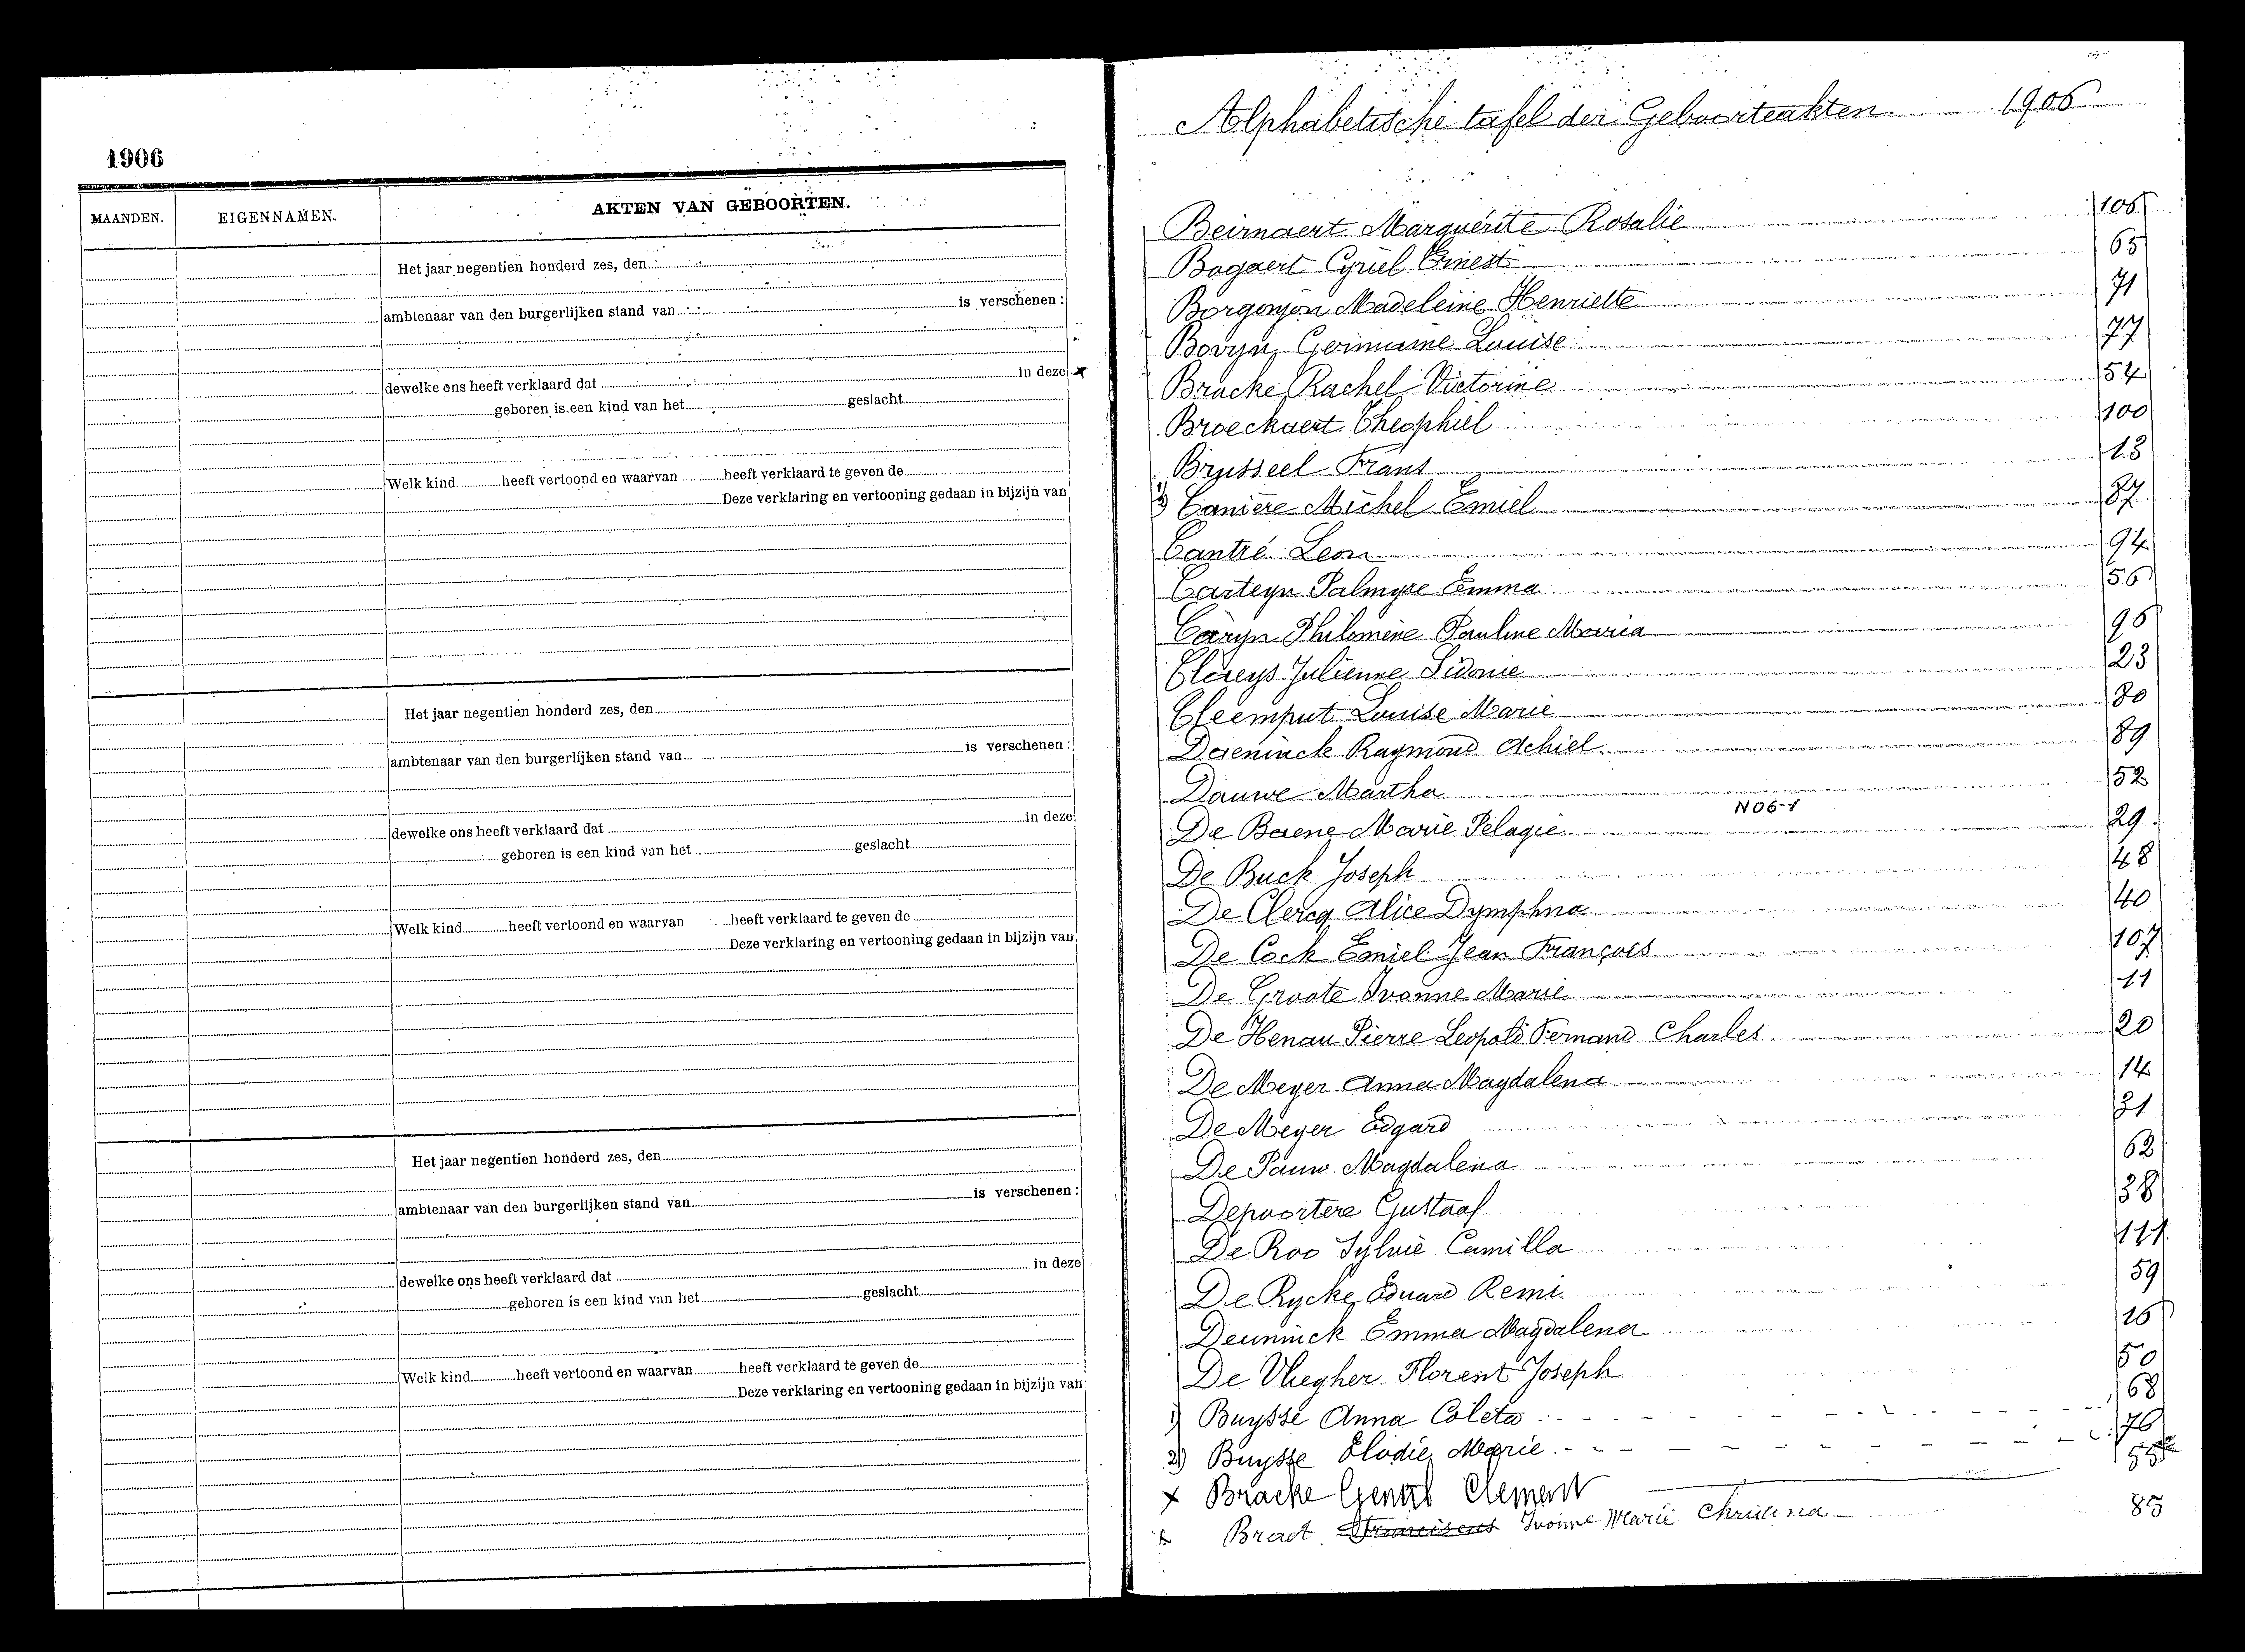 1906
MAANDEN. EIGENNAMEN. AKTEN VAN GEBOORTEN.
Het jaar negentien honderd zes, den
ambtenaar van den burgerlijken stand van is verschenen:
dewelke ons heeft verklaard dat in deze
geboren is een kind van het geslacht
Welk kind heeft vertoond en waarvan heeft verklaard te geven de
Deze verklaring en vertooning gedaan in bijzijn van
Het jaar negentien honderd zes, den
ambtenaar van den burgerlijken stand van is verschenen:
dewelke ons heeft verklaard dat in deze
geboren is een kind van het geslacht
Welk kind heeft vertoond en waarvan heeft verklaard te geven de
Deze verklaring en vertooning gedaan in bijzijn van
Het jaar negentien honderd zes, den
ambtenaar van den burgerlijken stand van is verschenen:
dewelke ons heeft verklaard dat in deze
geboren is een kind van het geslacht
Welk kind heeft vertoond en waarvan heeft verklaard te geven de
Deze verklaring en vertooning gedaan in bijzijn van
Alphabetische tafel der Geboorteakten. 1906
Beirnaert Marguérite Rosalie 106
Bogaert Cyriel Ernest 65
Borgonjon Madeleine Henriette 71
Bovyn Germaine Louise 77
Bracke Rachel Victorine 54
Broeckaert Theophiel 100
Brusseel Frans 13
3) Canière Michel Emiel 87
Cantré Leon 94
Carteyn Palmyre Emma 56
Caryn Philomène Pauline Maria 96
Clereys Julienne Sidonie 23
Cleemput Louise Marie 80
Daeninck Raymond Achiel 89
Dauwe Martha 52
De Baene Marie Pelagie N06-1 29
De Buck Joseph 48
De Clercq Alice Dymphna 40
De Cock Emiel Jean François 107
De Groote Ivonne Marie 11
De Henau Pierre Leopold Fernand Charles 20
De Meyer Anna Magdalena 14
De Meyer Edgard 31
De Pauw Magdalena 62
Depoortere Gustaaf 38
De Roo Sylvie Camilla 111
De Rycke Eduard Remi 59
Deuninck Emma Magdalena 26
De Vliegher Florent Joseph 50
1) Buysse Anna Coleta 68
2) Buysse Elodie Marie 76
x Bracke Clement 55
x Braet Ivonne Marie Christina 85